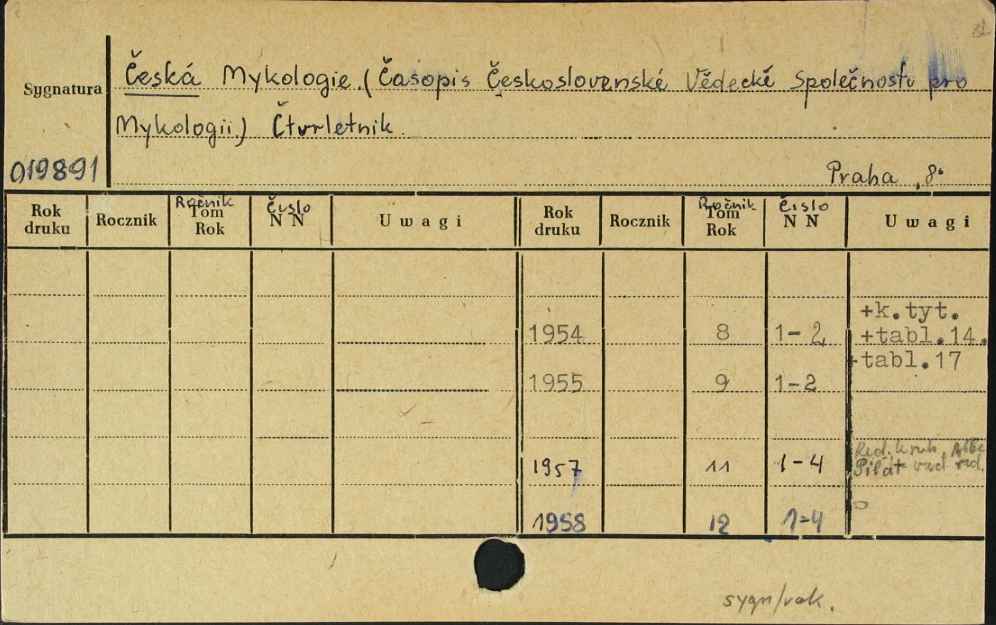 Sygnatura
Česká Mykologie. (Časopis Československé Vědecké Společnosti pro
Mykologii.) Čtvrletnik
019891
Praha, 8.
Rok druku Rocznik Ročnik Tom Rok Čislo N N Uwagi Rok druku Rocznik Ročnik Tom Rok Čislo N N Uwagi
+k.tyt.
1954 8 1-2 +tabl.14.
+tabl.17
1955 9 1-2
Red.
1957 11 1-4 Pilát red.
1958 12 1-4
sygn/rok.